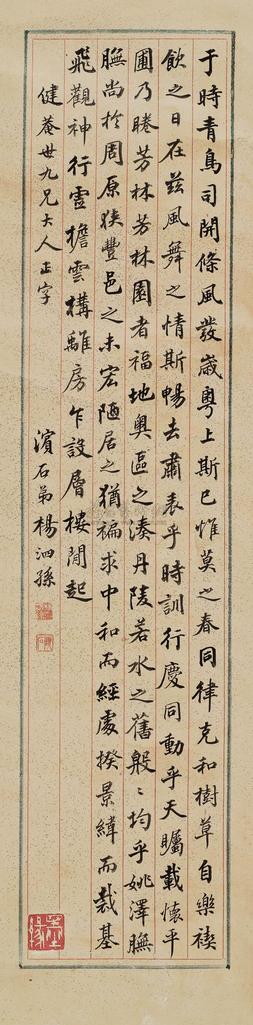 于時青鳥司開條風發歲粵上斯巳惟莫之春同律克和樹草自樂禊
飲之日在茲風舞之情斯暢去肅表乎時訓行慶同動乎天矚載懷平
圃乃睠芳林芳林園者福地奧區之湊丹陵若水之舊殷〻均乎姚澤膴
膴尚於周原狹豐邑之未宏陋居之猶褊求中和而經處揆景緯而裁基
飛觀神行虛擔雲構離房乍設層樓間起
健菴世九兄大人正字
濱石弟楊泗孫